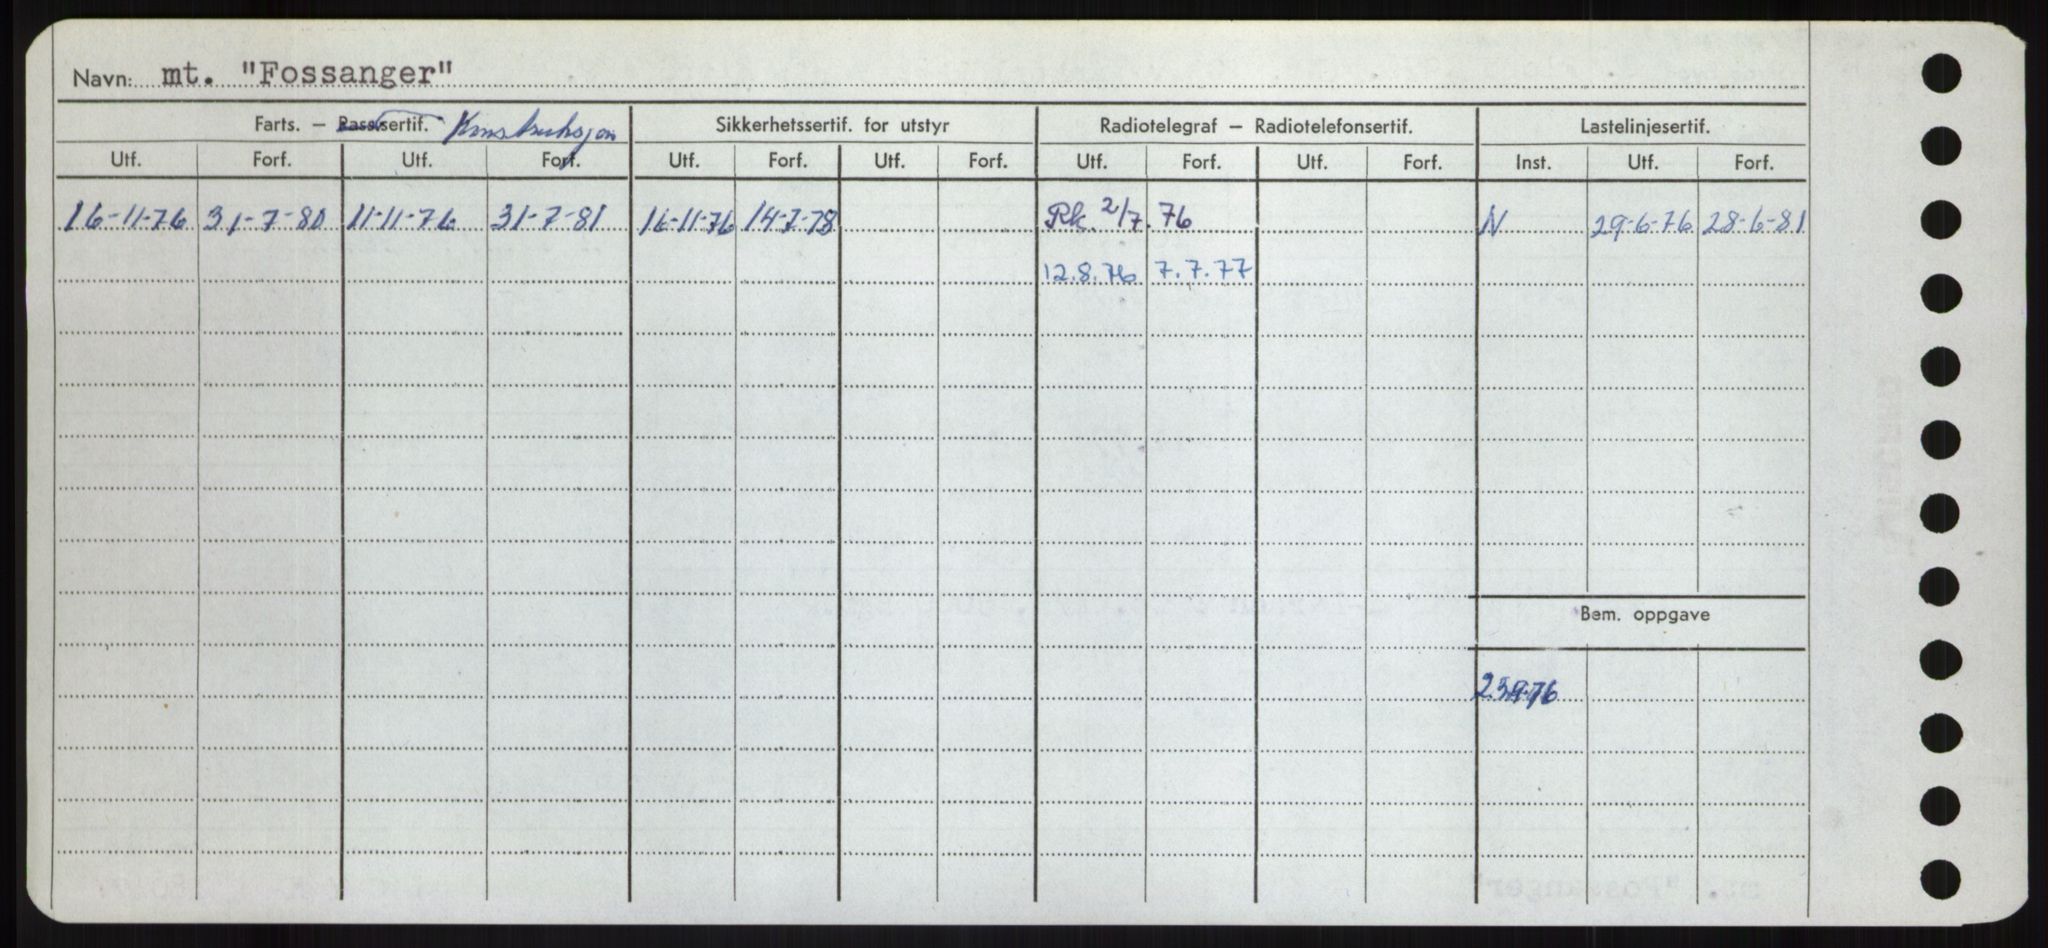 Navn: mt. "Fossanger"
Farts. – Passsertif. Konstruksjon Sikkerhetssertif. for utstyr Radiotelegraf – Radiotelefonsertif. Lastelinjesertif.
Utf. Forf. Utf. Forf. Utf. Forf. Utf. Forf. Utf. Forf. Utf. Forf. Inst. Utf. Forf.
16-11-76 31-7-80 11-11-76 31-7-81 16-11-76 14-7-78 Rk. 2/7. 76 N 29-6-76 28-6-81
12.8.76 7.7.77
Bem. oppgave